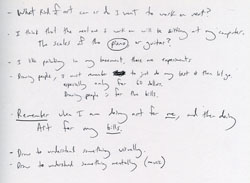 - What kind of art can or do I want to work on next?
- I think that the next one I work on will be sitting at my computer.
The scales of the piano or guitar?
- I like painting in my basement, these are experiments.
- Doing people, I must remember to just do my best & then let go.
especially only for 60 dollars.
Doing people is for the bills.
- Remember when I am doing art for me, and then doing
Art for my bills.
- Draw to understand something visually.
- Draw to understand something mentally (music)